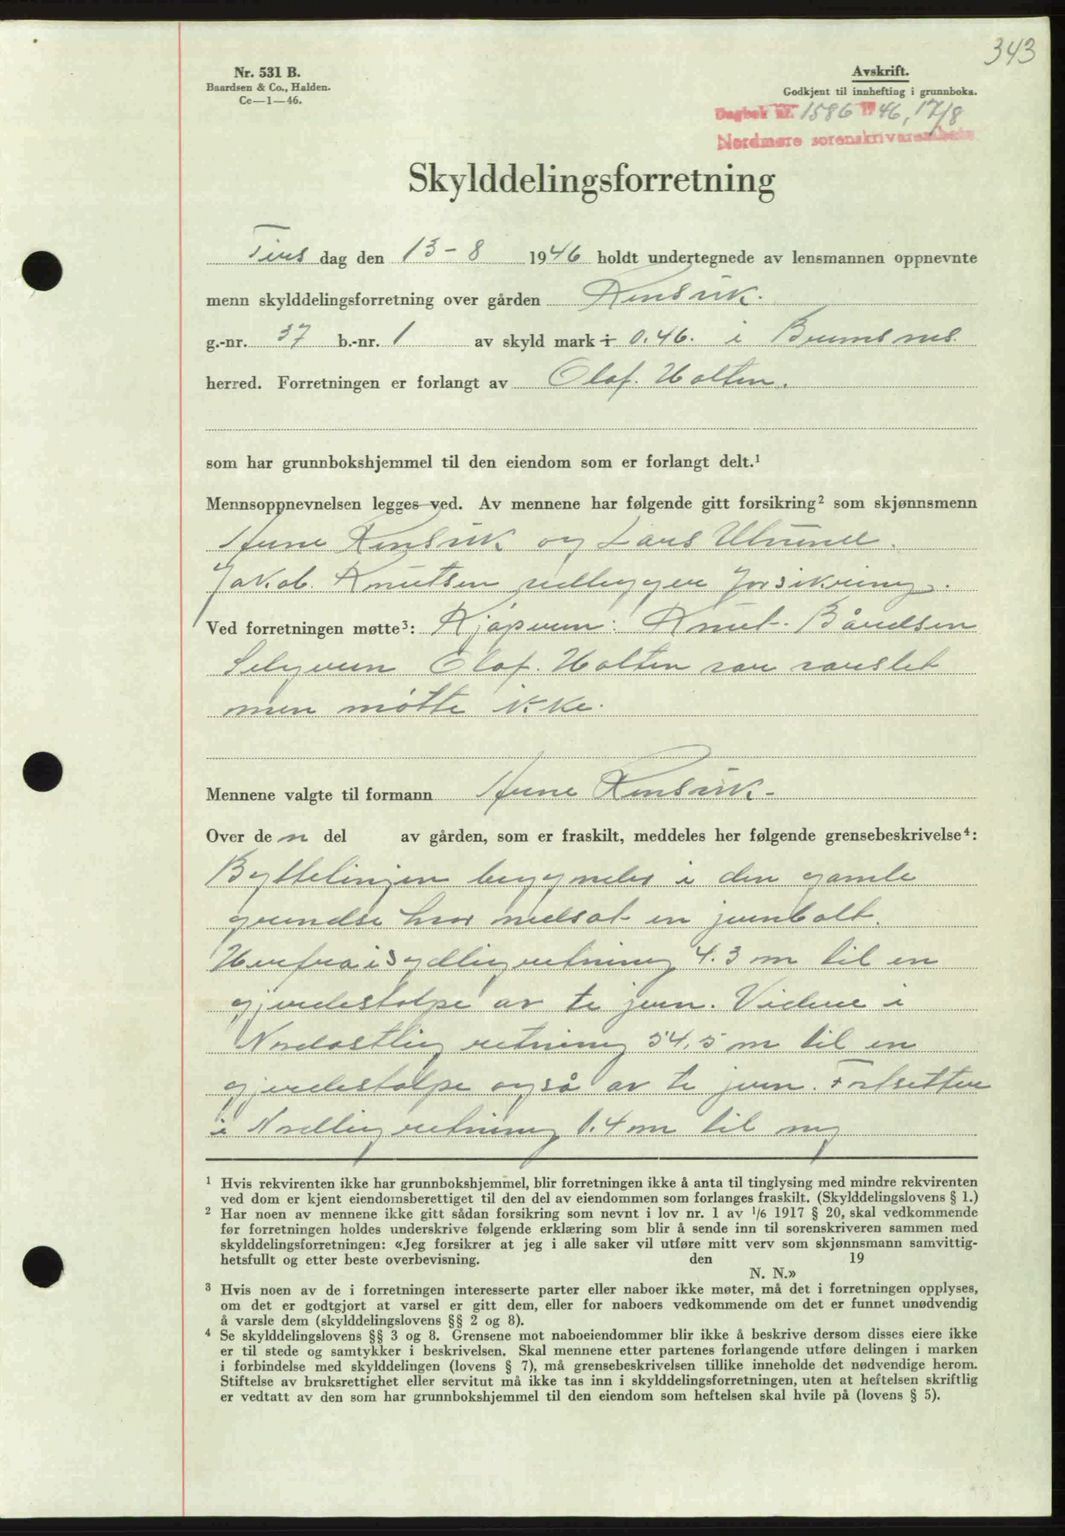 343
Nr. 531 B.
Baardsen & Co., Halden.
Cc—1—46.
Avskrift.
Godkjent til innhefting i grunnboka.
Dagbok nr. 1586 1946, 17/8
Nordmøre sorenskriverembete
Skylddelingsforretning
Tirs dag den 13-8 1946 holdt undertegnede av lensmannen oppnevnte
menn skylddelingsforretning over gården Rensvik.
g.-nr. 37 b.-nr. 1 av skyld mark 0.46. i Bremsnes
herred. Forretningen er forlangt av Olaf. Holten.
som har grunnbokshjemmel til den eiendom som er forlangt delt.¹
Mennsoppnevnelsen legges ved. Av mennene har følgende gitt forsikring² som skjønnsmenn
Arne Rensvik og Lars
Jakob. Knutsen vedlegger forsikring.
Ved forretningen møtte³: Kjøperen: Knut. Bårdsen
Selgeren Olaf. Holten var varslet
men møtte ikke.
Mennene valgte til formann Arne Rensvik-
Over de n del av gården, som er fraskilt, meddeles her følgende grensebeskrivelse⁴:
Byttelinjen begynner i den gamle
grendse hvor nedsat en jernbolt.
Herfra i sydlig retning 4.3 m til en
gjerdestolpe av te jern. Videre i
Nordøstlig retning 54,5 m til en
gjerdestolpe også av te jern. Fortsetter
i Nordlig retning 1.4 m til ny
¹ Hvis rekvirenten ikke har grunnbokshjemmel, blir forretningen ikke å anta til tinglysing med mindre rekvirenten
ved dom er kjent eiendomsberettiget til den del av eiendommen som forlanges fraskilt. (Skylddelingslovens § 1.)
² Har noen av mennene ikke gitt sådan forsikring som nevnt i lov nr. 1 av 1/6 1917 § 20, skal vedkommende
før forretningen holdes underskrive følgende erklæring som blir å sende inn til sorenskriveren sammen med
skylddelingsforretningen: «Jeg forsikrer at jeg i alle saker vil utføre mitt verv som skjønnsmann samvittig-
hetsfullt og etter beste overbevisning. den 19
N. N.»
³ Hvis noen av de i forretningen interesserte parter eller naboer ikke møter, må det i forretningen opplyses,
om det er godtgjort at varsel er gitt dem, eller for naboers vedkommende om det er funnet unødvendig
å varsle dem (skylddelingslovens §§ 2 og 8).
⁴ Se skylddelingslovens §§ 3 og 8. Grensene mot naboeiendommer blir ikke å beskrive dersom disses eiere ikke
er til stede og samtykker i beskrivelsen. Skal mennene etter partenes forlangende utføre delingen i marken
i forbindelse med skylddelingen (lovens § 7), må grensebeskrivelsen tillike inneholde det nødvendige herom.
Stiftelse av bruksrettighet eller servitut må ikke tas inn i skylddelingsforretningen, uten at heftelsen skriftlig
er vedtatt av den som har grunnbokshjemmel til den eiendom som heftelsen skal hvile på (lovens § 5).